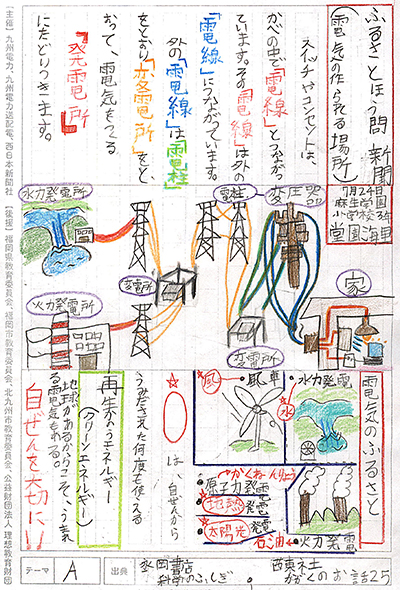 ふるさとほう問新聞
(電気の作られる場所)
7月24日
麻生学園
小学校3年
堂園海里
スイッチやコンセントは、
かべの中で「電線」とつながっ
ています。その「電線」は外の
「電線」につながっています。
外の「電線」は「電柱」
をとおり「変電所」をと
おって、電気をつくる
「発電所」
にたどりつきます。
家
変圧器
電柱
変電所
変電所
水力発電所
火力発電所
電気のふるさと
・水力発電
水
・風車
風
・かくねんりょう
・原子力発電
・地熱発電
・太陽光発電
石油
・火力発電
☆
☆○は自ぜんから
うみだされた何度も使える
再生かのうエネルギー
(クリーンエネルギー)
地球があるからこそ、うまれ
る電気もある。
自ぜんを大切に!!
テーマ A 出典
永岡書店
科学のふしぎ
西東社
かがくのお話25
【主催】九州電力、九州電力送配電、西日本新聞社 【後援】福岡県教育委員会、福岡市教育委員会、北九州市教育委員会、公益財団法人 理想教育財団